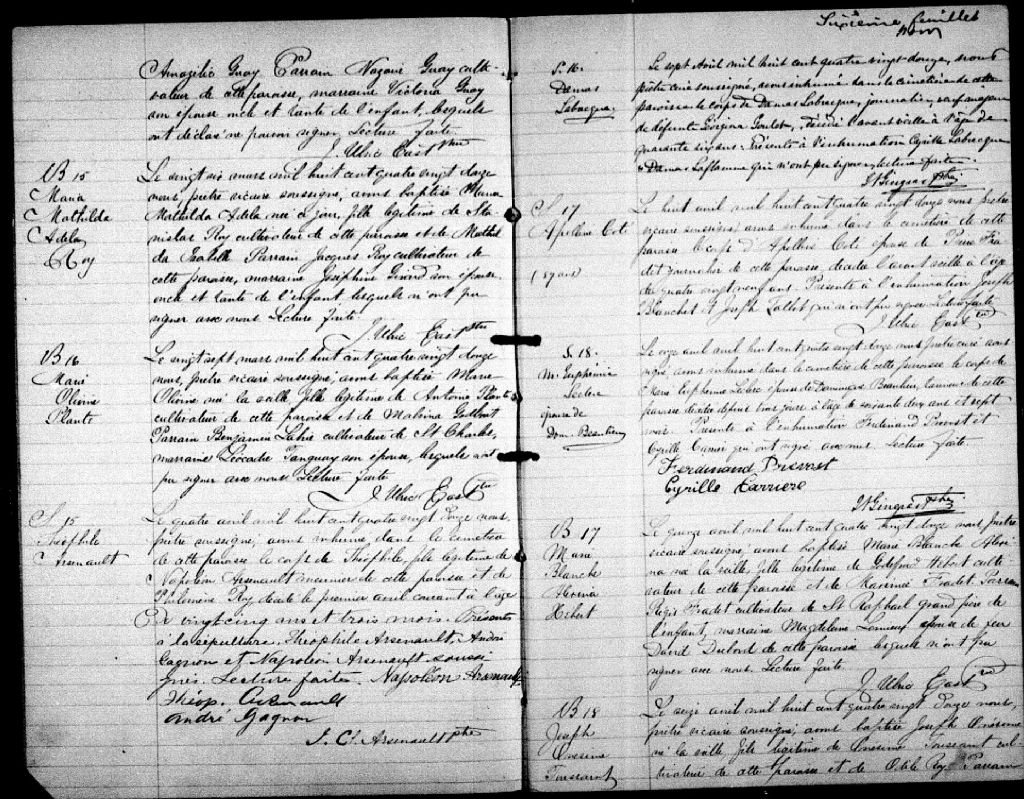 Amazélie Guay Parrain Nazaire Guay culti-
vateur de cette paroisse, marraine Victoria Guay
son épouse oncle et tante de l'enfant, lesquels
ont déclaré ne pouvoir signer. Lecture faite.
J. Ulric East ptre
B 15
Maria
Mathilda
Adela
Roy
Le vingt six mars mil huit cent quatre vingt douze
nous, prêtre vicaire soussigné, avons baptisé Maria
Mathilda Adela née ce jour, fille légitime de Sta-
nislas Roy cultivateur de cette paroisse et de Mathil
da Parrain Jacques Roy cultivateur de
cette paroisse, marraine Joséphine son épouse,
oncle et tante de l'enfant lesquels n'ont pu
signer avec nous Lecture faite.
J. Ulric East ptre
B 16
Marie
Plante
Le vingt sept mars mil huit cent quatre vingt douze
nous, prêtre vicaire soussigné, avons baptisé Marie
née la veille, fille légitime de Antoine Plante
cultivateur de cette paroisse et de Malvina
Parrain Benjamin Labrie cultivateur de St Charles,
marraine Léocadie Tanguay son épouse, lesquels n'ont
pu signer avec nous Lecture faite
J. Ulric East ptre
S 15
Théophile
Arsenault
Le quatre avril mil huit cent quatre vingt douze nous
prêtre soussigné, avons inhumé dans le cimetière
de cette paroisse le corps de Théophile, fils légitime de
Napoléon Arsenault de cette paroisse et de
Philomène Roy décédé le premier avril courant à l'age
De vingt cinq ans et trois mois. Présents
à la sépulture, Théophile Arsenault, André
Gagnon et Napoléon Arsenault soussi
gnés. Lecture faite. Napoléon Arsenault
Théop. Arsenault
André Gagnon
J. Cl. Arsenault ptre
Sixième feuillet
S. 16.
Damas
Labrecque
Le sept Avril mil huit cent quatre vingt-douze, nous
prêtre curé soussigné, avons inhumé dans le cimetière de cette
paroisse le corps de Damas Labrecque, journalier, veuf majeur
de défunte Goulet, décédé l'avant veille à l'age de
quarante six ans: Présents à l'inhumation Cyrille Labrecque
& Damas Laflamme qui n'ont pu signer, lecture faite.
St Gingras Ptre
S 17
Apolline Coté
Le huit avril mil huit cent quatre vingt douze nous prêtre
vicaire soussigné avons inhumé dans le cimetière de cette
paroisse le corps d'Apolline Coté épouse de Pierre
journalier de cette paroisse, décédée l'avant veille à l'age
de quatre vingt neuf ans. Présents à l'inhumation Joseph
Blanchet et Joseph Talbot qui n'ont pu signer Lecture faite
J. Ulric East ptre
S. 18.
M. Euphémie
Leclerc
épouse de
Dom. Beaulieu
Le onze avril mil huit cent quatre vingt douze nous prêtre curé sous-
signé, avons inhumé dans le cimetière de cette paroisse le corps de
Marie Euphémie Leclerc épouse de Dominique Beaulieu, de cette
paroisse décédée depuis trois jours à l'age de soixante douze ans et sept
mois. Présents à l'inhumation Ferdinand Prévost et
Cyrille qui ont signé avec nous Lecture faite
Ferdinand Prevost
Cyrille Carriere
St Gingras Ptre
B 17
Marie
Blanche
Hebert
Le quinze avril mil huit cent quatre vingt douze nous, prêtre
vicaire soussigné, avons baptisé Marie Blanche
née la veille, fille légitime de Hebert culti-
vateur de cette paroisse et de Fradet Parrain
Régis Fradet cultivateur de St Raphael grand père de
l'enfant, marraine Magdeleine Lemieux épouse de feu
David Dubord de cette paroisse lesquels n'ont pu
signer avec nous. Lecture faite
J. Ulric East ptre
B 18
Joseph
Onésime
Toussaint
Le seize avril mil huit cent quatre vingt douze nous,
prêtre vicaire soussigné, avons baptisé Joseph Onésime
né la veille fils légitime de Onésime Toussaint cul-
tivateur de cette paroisse et de Odile Roy Parrain